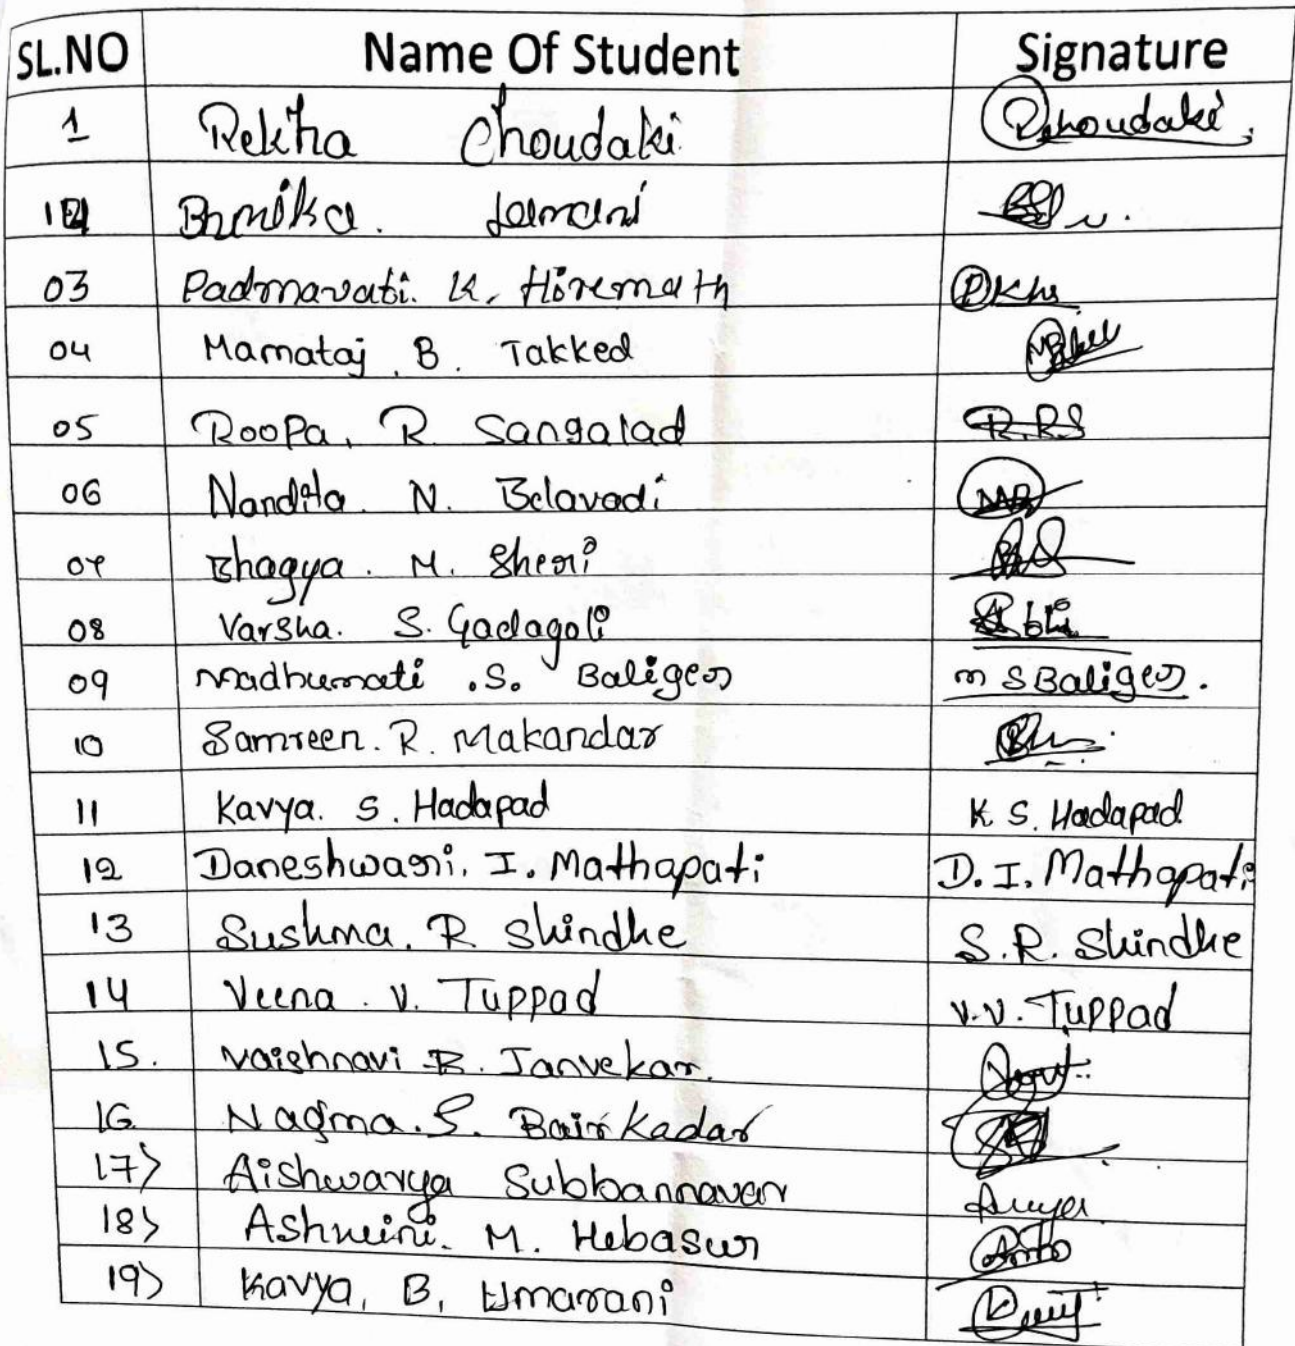 SL.NO Name Of Student Signature
1 Rekha Choudaki Rchoudaki.
Bhmika. Lamani
03 Padmavati. K. Hiremath PKH
04 Mamataj. B. Takked
05 Roopa. R. Sangalad R.RS
06 Nandita. N. Belavadi NB
07 Bhagya. M. Sheri
08 Varsha. S. Gadagoli
09 Madhumati .S. Baliger m S Baliger.
10 Samreen. R. Makandar
11 Kavya. S. Hadapad K S. Hadapad
12 Daneshwari. I. Mathapati D. I. Mathapati
13 Sushma. R Shindhe S.R. Shindhe
14 Veena. V. Tuppad V.V. Tuppad
15. Vaishnavi B. Janvekar.
16 Nagma. S. Bairkadar
17) Aishwarya Subbannavar
18) Ashwini. M. Hebasur
19) Kavya. B. Umarani